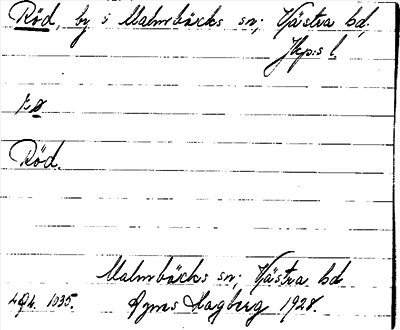 Röd, by i Malmbäcks sn; Västra hd,
Jkp:s l.
rø
Röd.
Malmbäcks sn; Västra hd
1035. Agnes Hagberg 1928.